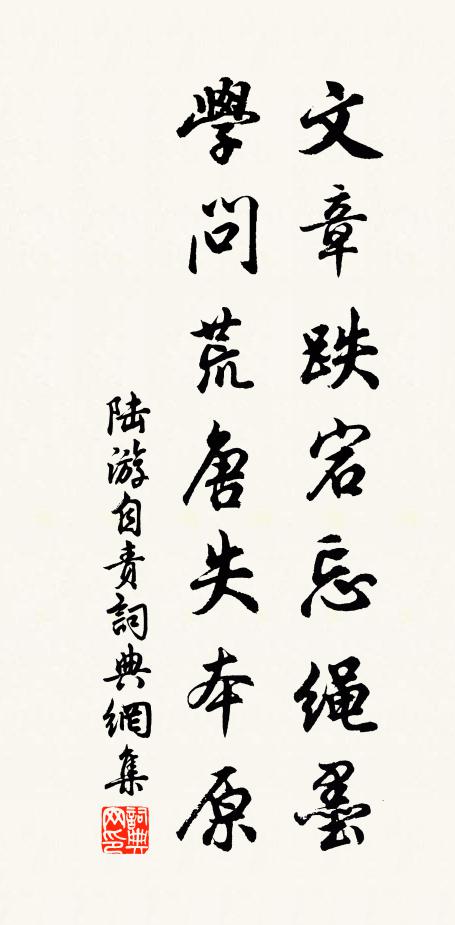 文章跌宕忘绳墨
學問荒唐失本原
陆游自责詞典網集
詞典網印